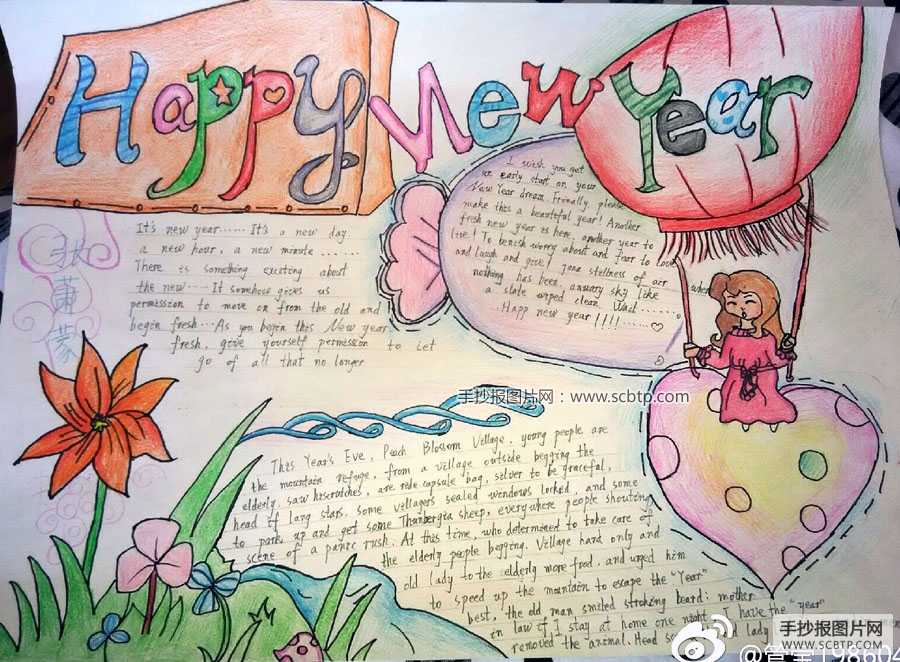 Happy New Year
It's new year...... It's a new day
a new hour, a new minute ......
There is something exciting about
the new.... It somehow gives us
permission to move on from the old and
begin fresh... As you begin this New year
fresh, give yourself permission to let
go of all that no longer
I wish you get
an early start on your
New Year dream. Frienally, please
make this a beautiful year! Another
fresh new year is here, another year to
live! To banish worry about and fear to love
and laugh and give! gona stellness of air
nothing has been, anuary sky like
a slate wiped clean. Wait........
Happy new year!!!!
when
张
萧
蒙
手抄报图片网：www.scbtp.com
This Year's Eve, Peach Blossom Village, young people are
the mountain refuge, from a village outside begging the
elderly, saw his crutches, are ride capsule bag, silver to be graceful,
head if lang stars. Some villagers sealed windows locked, and some
to park up and get some Thunbergia sheep, everywhere people shouting
scene of a panic rush. At this time, who determined to take care of
the elderly people begging. Village hard only and
old lady to the elderly more food, and urged him
to speed up the mountain to escape the "Year"
best, the old man smiled stroking beard: mother
in law if I stay at home one night, I have the "year"
removed the animal. Head lady
手抄报图片网
SCBTP.COM